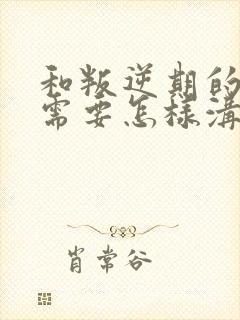 和叛逆期的
需要怎樣溝
肖常谷